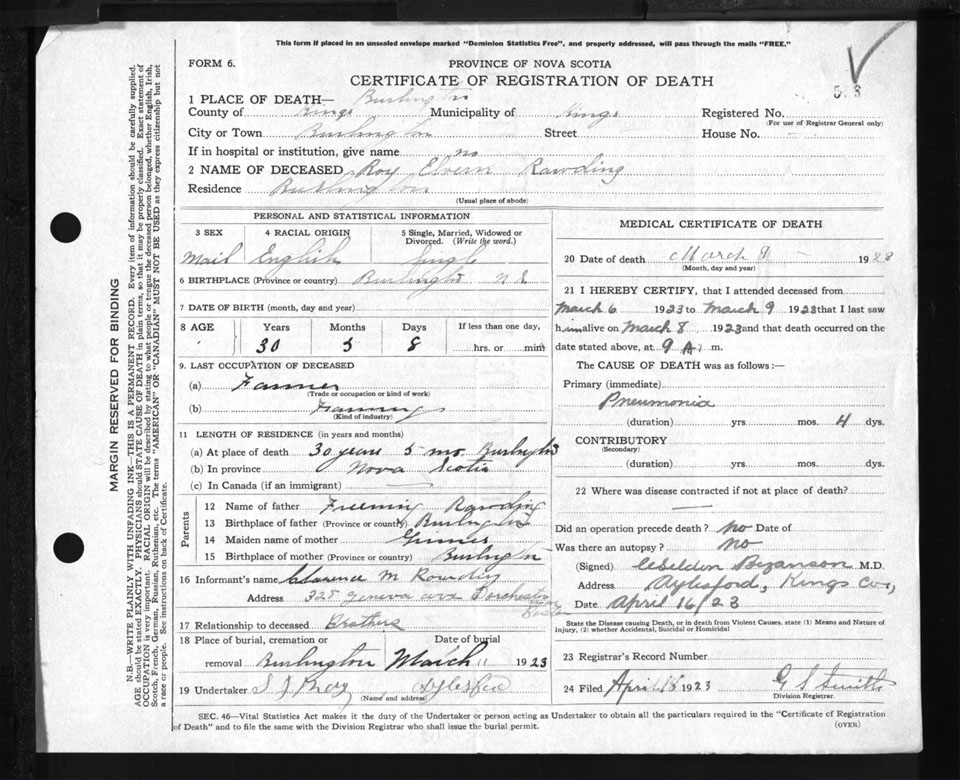 This form if placed in an unsealed envelope marked "Dominion Statistics Free", and properly addressed, will pass through the mails "FREE."
FORM 6.
PROVINCE OF NOVA SCOTIA
CERTIFICATE OF REGISTRATION OF DEATH
1 PLACE OF DEATH— Burlington
County of Kings Municipality of Kings Registered No.
(For use of Registrar General only)
City or Town Burlington Street House No. —
If in hospital or institution, give name no
2 NAME OF DECEASED Roy Elvern Rawding
Residence Burlington
(Usual place of abode)
PERSONAL AND STATISTICAL INFORMATION
3 SEX 4 RACIAL ORIGIN 5 Single, Married, Widowed or Divorced. (Write the word.)
Mail English Single
6 BIRTHPLACE (Province or country) Burlington N S
7 DATE OF BIRTH (month, day and year)
8 AGE Years Months Days If less than one day,
30 5 8 hrs. or min.
9. LAST OCCUPATION OF DECEASED
(a) Farmer
(Trade or occupation or kind of work)
(b) Farming
(Kind of industry)
11 LENGTH OF RESIDENCE (in years and months)
(a) At place of death 30 years 5 mo. Burlington
(b) In province Nova Scotia
(c) In Canada (if an immigrant) —
Parents
12 Name of father Rawding
13 Birthplace of father (Province or country) Burlington
14 Maiden name of mother
15 Birthplace of mother (Province or country) Burlington
16 Informant's name Clarence M Rowding
Address 325 Geneva ave Dorchester
17 Relationship to deceased Brother
18 Place of burial, cremation or removal Date of burial
Burlington March 11 1923
19 Undertaker
(Name and address)
MEDICAL CERTIFICATE OF DEATH
20 Date of death March 9 – 1923
(Month, day and year)
21 I HEREBY CERTIFY, that I attended deceased from
March 6 1923 to March 9 1923 that I last saw
him alive on March 8 1923 and that death occurred on
date stated above, at 9 A. m.
The CAUSE OF DEATH was as follows:—
Primary (immediate)
Pneumonia
(duration) yrs. mos. 4 dys.
CONTRIBUTORY
(Secondary)
(duration) yrs. mos. dys.
22 Where was disease contracted if not at place of death?
—
Did an operation precede death? no Date of
Was there an autopsy? No
(Signed) Bezanson M.D.
Address Aylesford, Kings Co,
Date April 16/23
State the Disease causing Death, or in death from Violent Causes, state (1) Means and Nature of Injury, (2) whether Accidental, Suicidal or Homicidal
23 Registrar's Record Number
24 Filed April 18 1923 G S Smith
Division Registrar.
SEC. 46—Vital Statistics Act makes it the duty of the Undertaker or person acting as Undertaker to obtain all the particulars required in the "Certificate of Registration
of Death" and to file the same with the Division Registrar who shall issue the burial permit.
(OVER)
MARGIN RESERVED FOR BINDING
N.B.—WRITE PLAINLY WITH UNFADING INK—THIS IS A PERMANENT RECORD. Every item of information should be carefully supplied.
AGE should be stated EXACTLY. PHYSICIANS should STATE CAUSE OF DEATH in plain terms, so that it may be properly classified. Exact statement of
OCCUPATION is very important. RACIAL ORIGIN will be described by stating to what people or tongue the deceased person belonged, whether English, Irish,
Scotch, French, German, Russian, Ruthenian, etc. The terms "AMERICAN" OR "CANADIAN" MUST NOT BE USED as they express citizenship but not
a race or people. See instructions on back of Certificate.